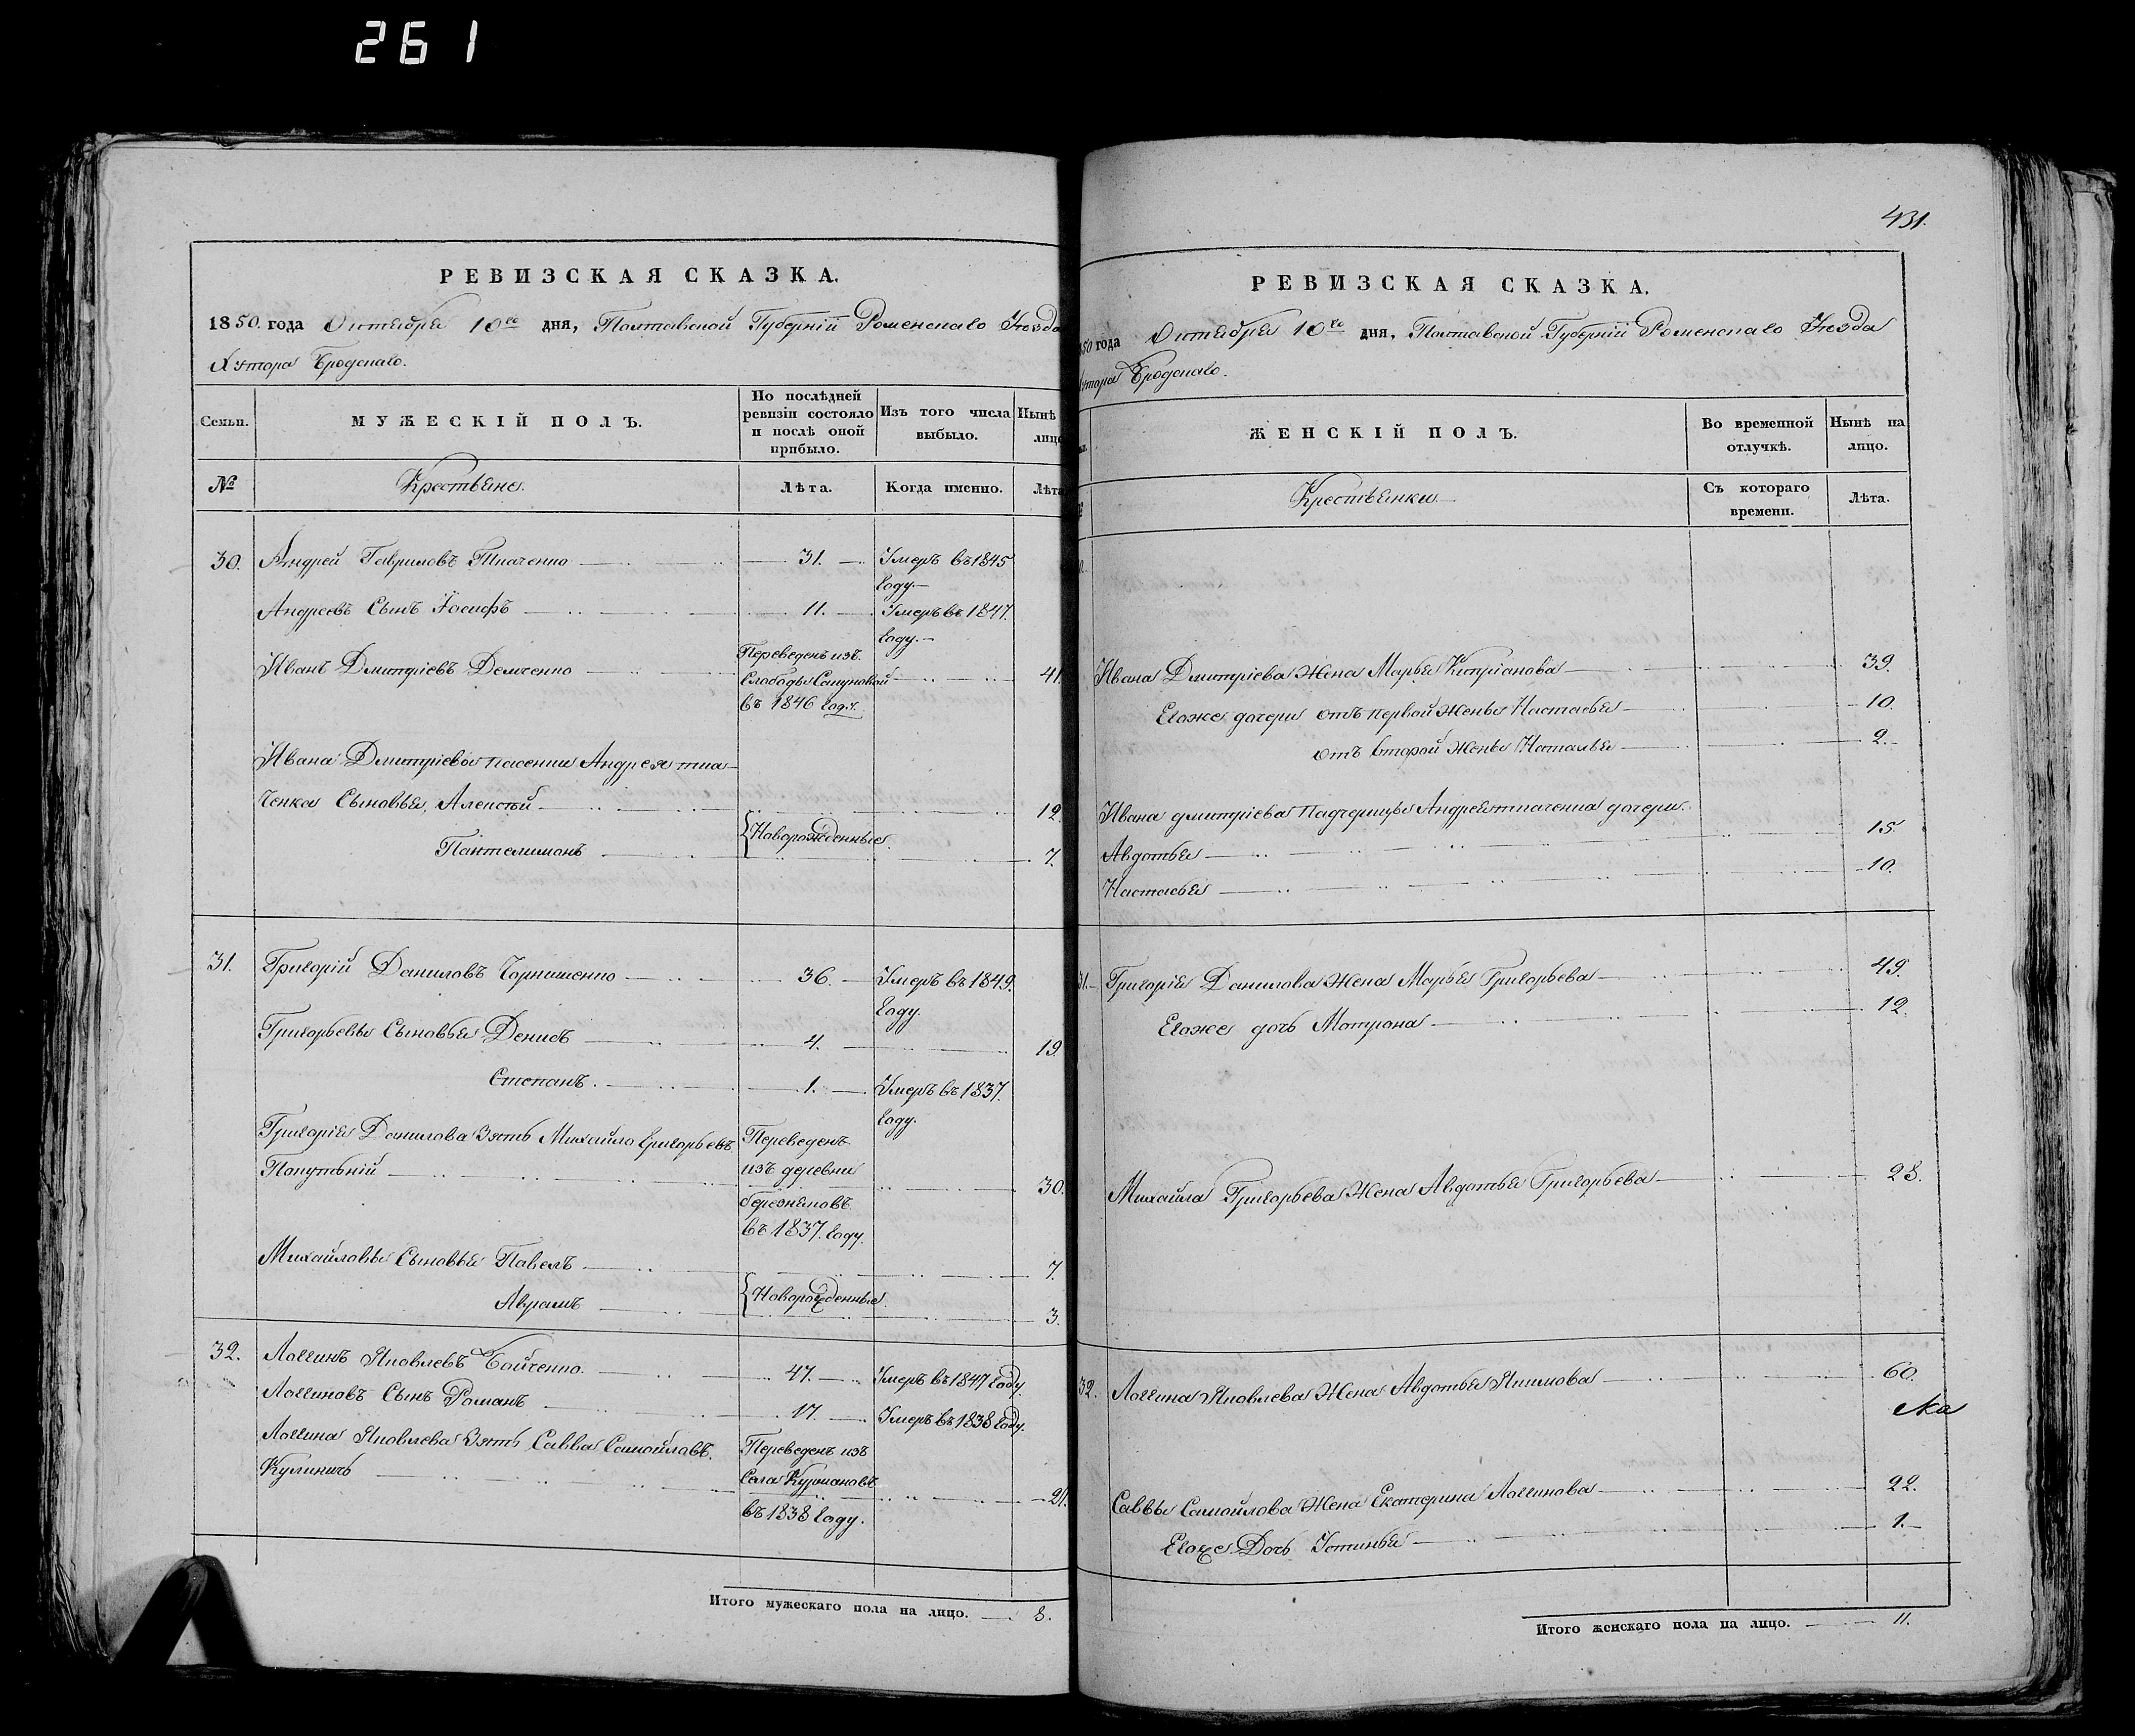 261
РЕВИЗСКАЯ СКАЗКА.
1850. года Октября 10го дня, Полтавской Губерніи Роменскаго Уѣзда
Хутора Бродскаго.
Семьи.
МУЖЕСКІЙ ПОЛЪ.
По послѣдней ревизіи состояло и послѣ оной прибыло.
Изъ того числа выбыло.
Нынѣ
лицо
№
Крестьяне.
Лѣта.
Когда именно.
Лѣта
30. Андрей Гавриловъ Ткаченко 31. Умеръ въ 1845
году.
Андреевъ Сынъ Іосифъ 11. Умеръ въ 1847.
году.
Иванъ Дмитріевъ Демченко Переведенъ изъ
Слободы Сакуновой 41.
въ 1846 году.
Ивана Дмитріева пасенки Андрея тка-
ченка Сыновья, Алексѣй 12.
Новорожденные
Пантелимонъ 7.
31. Григорій Даниловъ Чорнышенко 36. Умеръ въ 1849.
году.
Григорьевы Сыновья Денисъ 4. 19.
Степанъ. 1. Умеръ въ 1837.
году.
Григорія Данилова Зять Михайло григорьевъ Переведенъ
изъ деревни
30.
въ 1837. году.
Михайловы Сыновья Павелъ 7.
Новорожденные
Аврамъ 3.
32. Логинъ Яковлевъ Бойченко. 47. Умеръ въ 1847 году.
Логиновъ Сынъ Романъ 17. Умеръ въ 1838 году.
Логина Яковлева Зять Савва Самойловъ. Переведенъ изъ
Кулиничъ Села Курмановъ 21.
въ 1838 году.
Итого мужескаго пола на лицо. 8.
431.
РЕВИЗСКАЯ СКАЗКА.
850 года Октября 10го дня, Полтавской Губерніи Роменскаго Уѣзда
утора Бродскаго.
ЖЕНСКІЙ ПОЛЪ.
Во временной отлучкѣ.
Нынѣ на лицо.
Крестьянки
Съ котораго времени.
Лѣта.
Ивана Дмитріева Жена Марья Кипріанова 39.
Егоже дочери отъ первой Жены Настасья 10.
отъ второй Жены Наталья 2.
Ивана дмитріева Падчерицы Андрея ткаченка дочери.
Авдотья 15.
Настасья 10.
31. Григорія Данилова Жена Марья Григорьева 49.
Егоже дочь Матрона 12.
Михайла Григорьева Жена Авдотья Григорьева 28.
32. Логина Яковлева Жена Авдотья Якимова 60.
Саввы Самойлова Жена Екатерина Логинова 22.
Егоже Дочь Устинья 1.
Итого женскаго пола на лицо. 11.